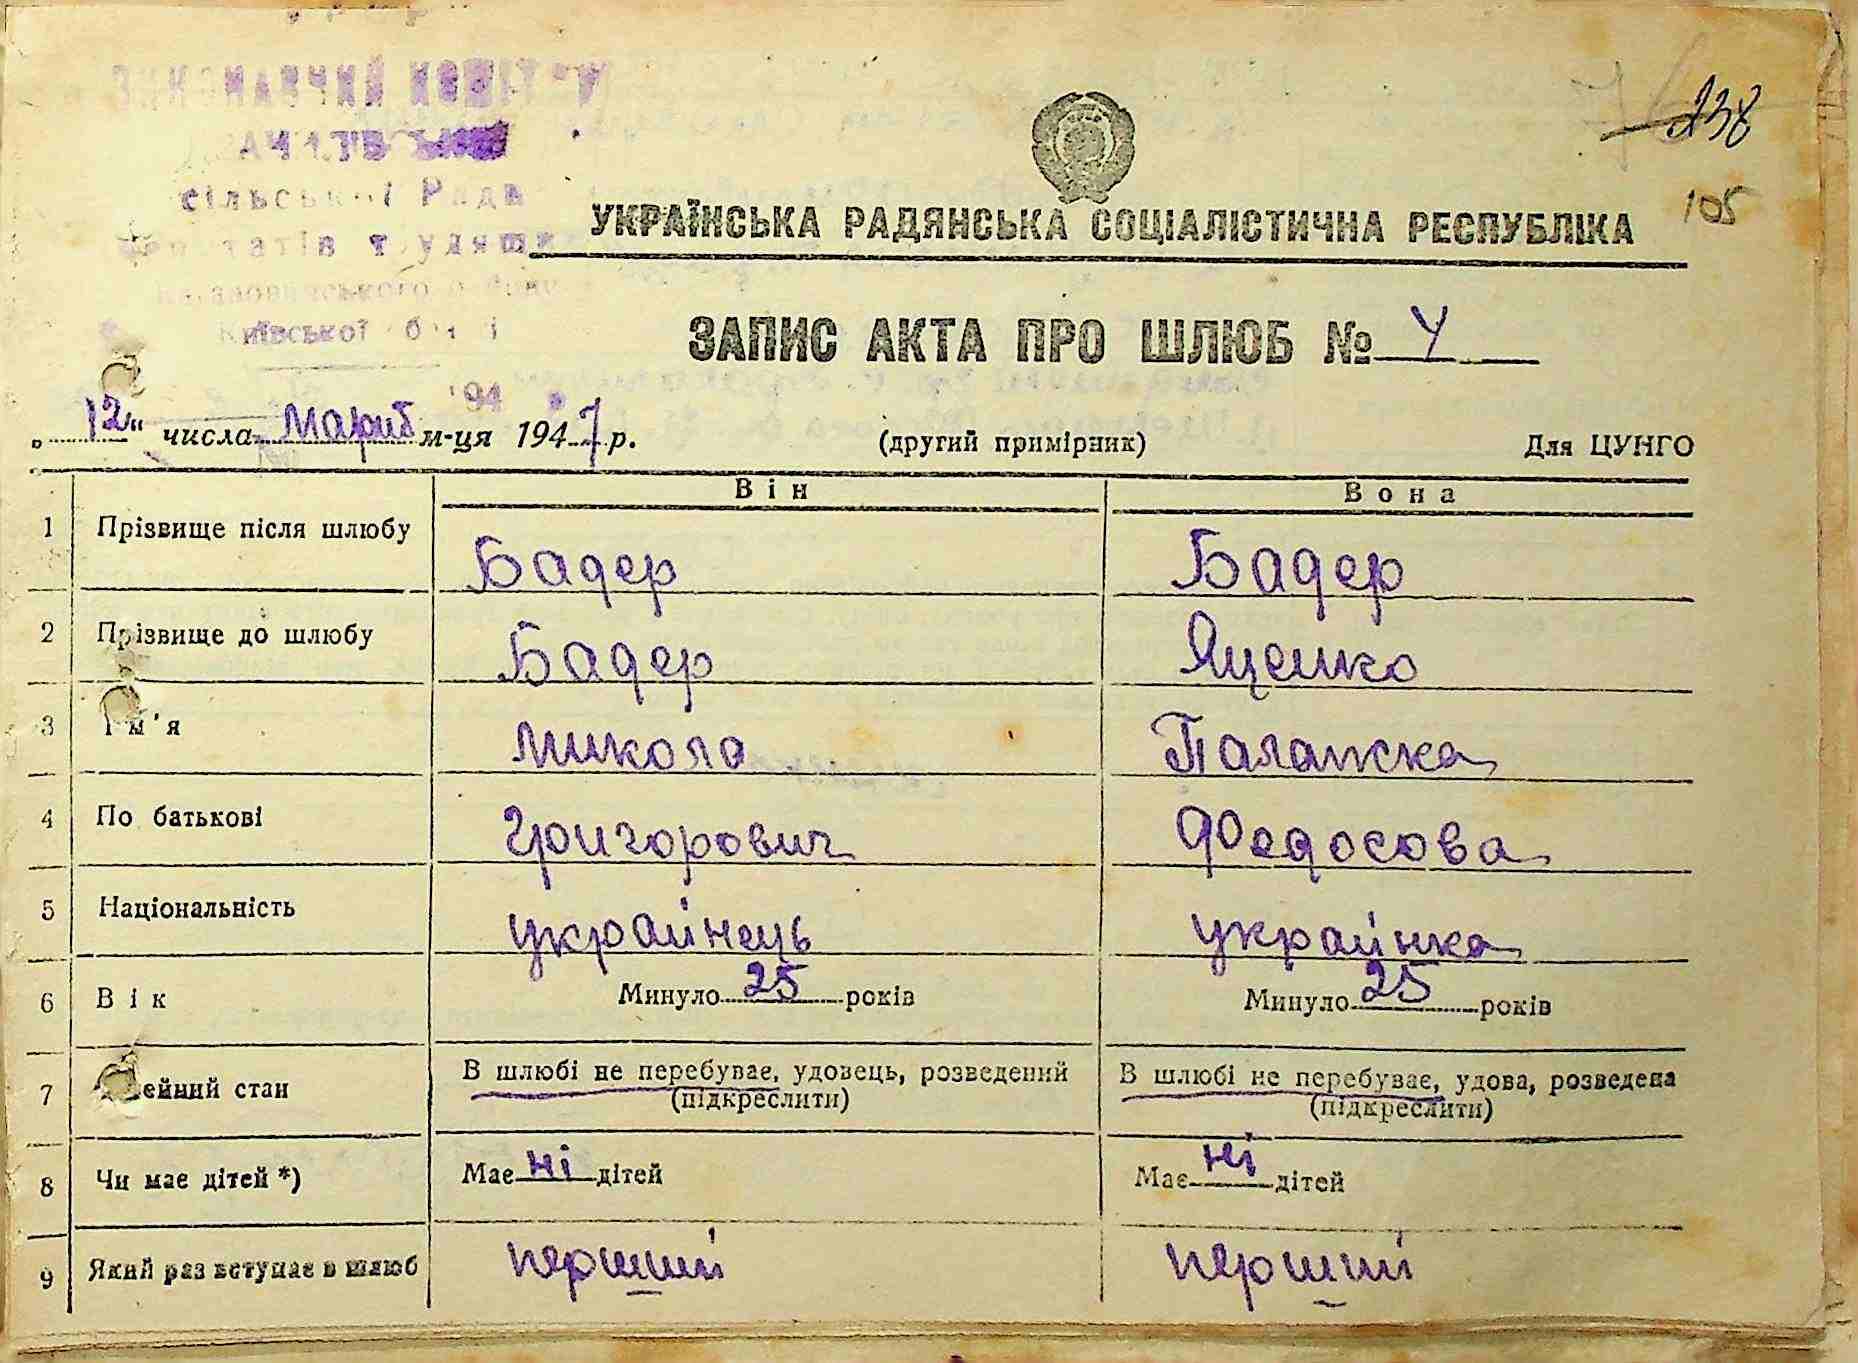 238
105
сільської Ради
Київської
УКРАЇНСЬКА РАДЯНСЬКА СОЦІАЛІСТИЧНА РЕСПУБЛІКА
ЗАПИС АКТА ПРО ШЛЮБ № 4
„12“ числа Марта м-ця 1947 р. (другий примірник) Для ЦУНГО
Він Вона
1 Прізвище після шлюбу Бадер Бадер
2 Прізвище до шлюбу Бадер Яценко
3 Ім'я Микола Палажка
4 По батькові Григорович Федосова
5 Національність українець українка
6 Вік Минуло 25 років Минуло 25 років
7 ейний стан В шлюбі не перебуває, удовець, розведений В шлюбі не перебуває, удова, розведена
(підкреслити) (підкреслити)
8 Чи має дітей *) Має ні дітей Має ні дітей
9 Який раз вступає в шлюб перший перший